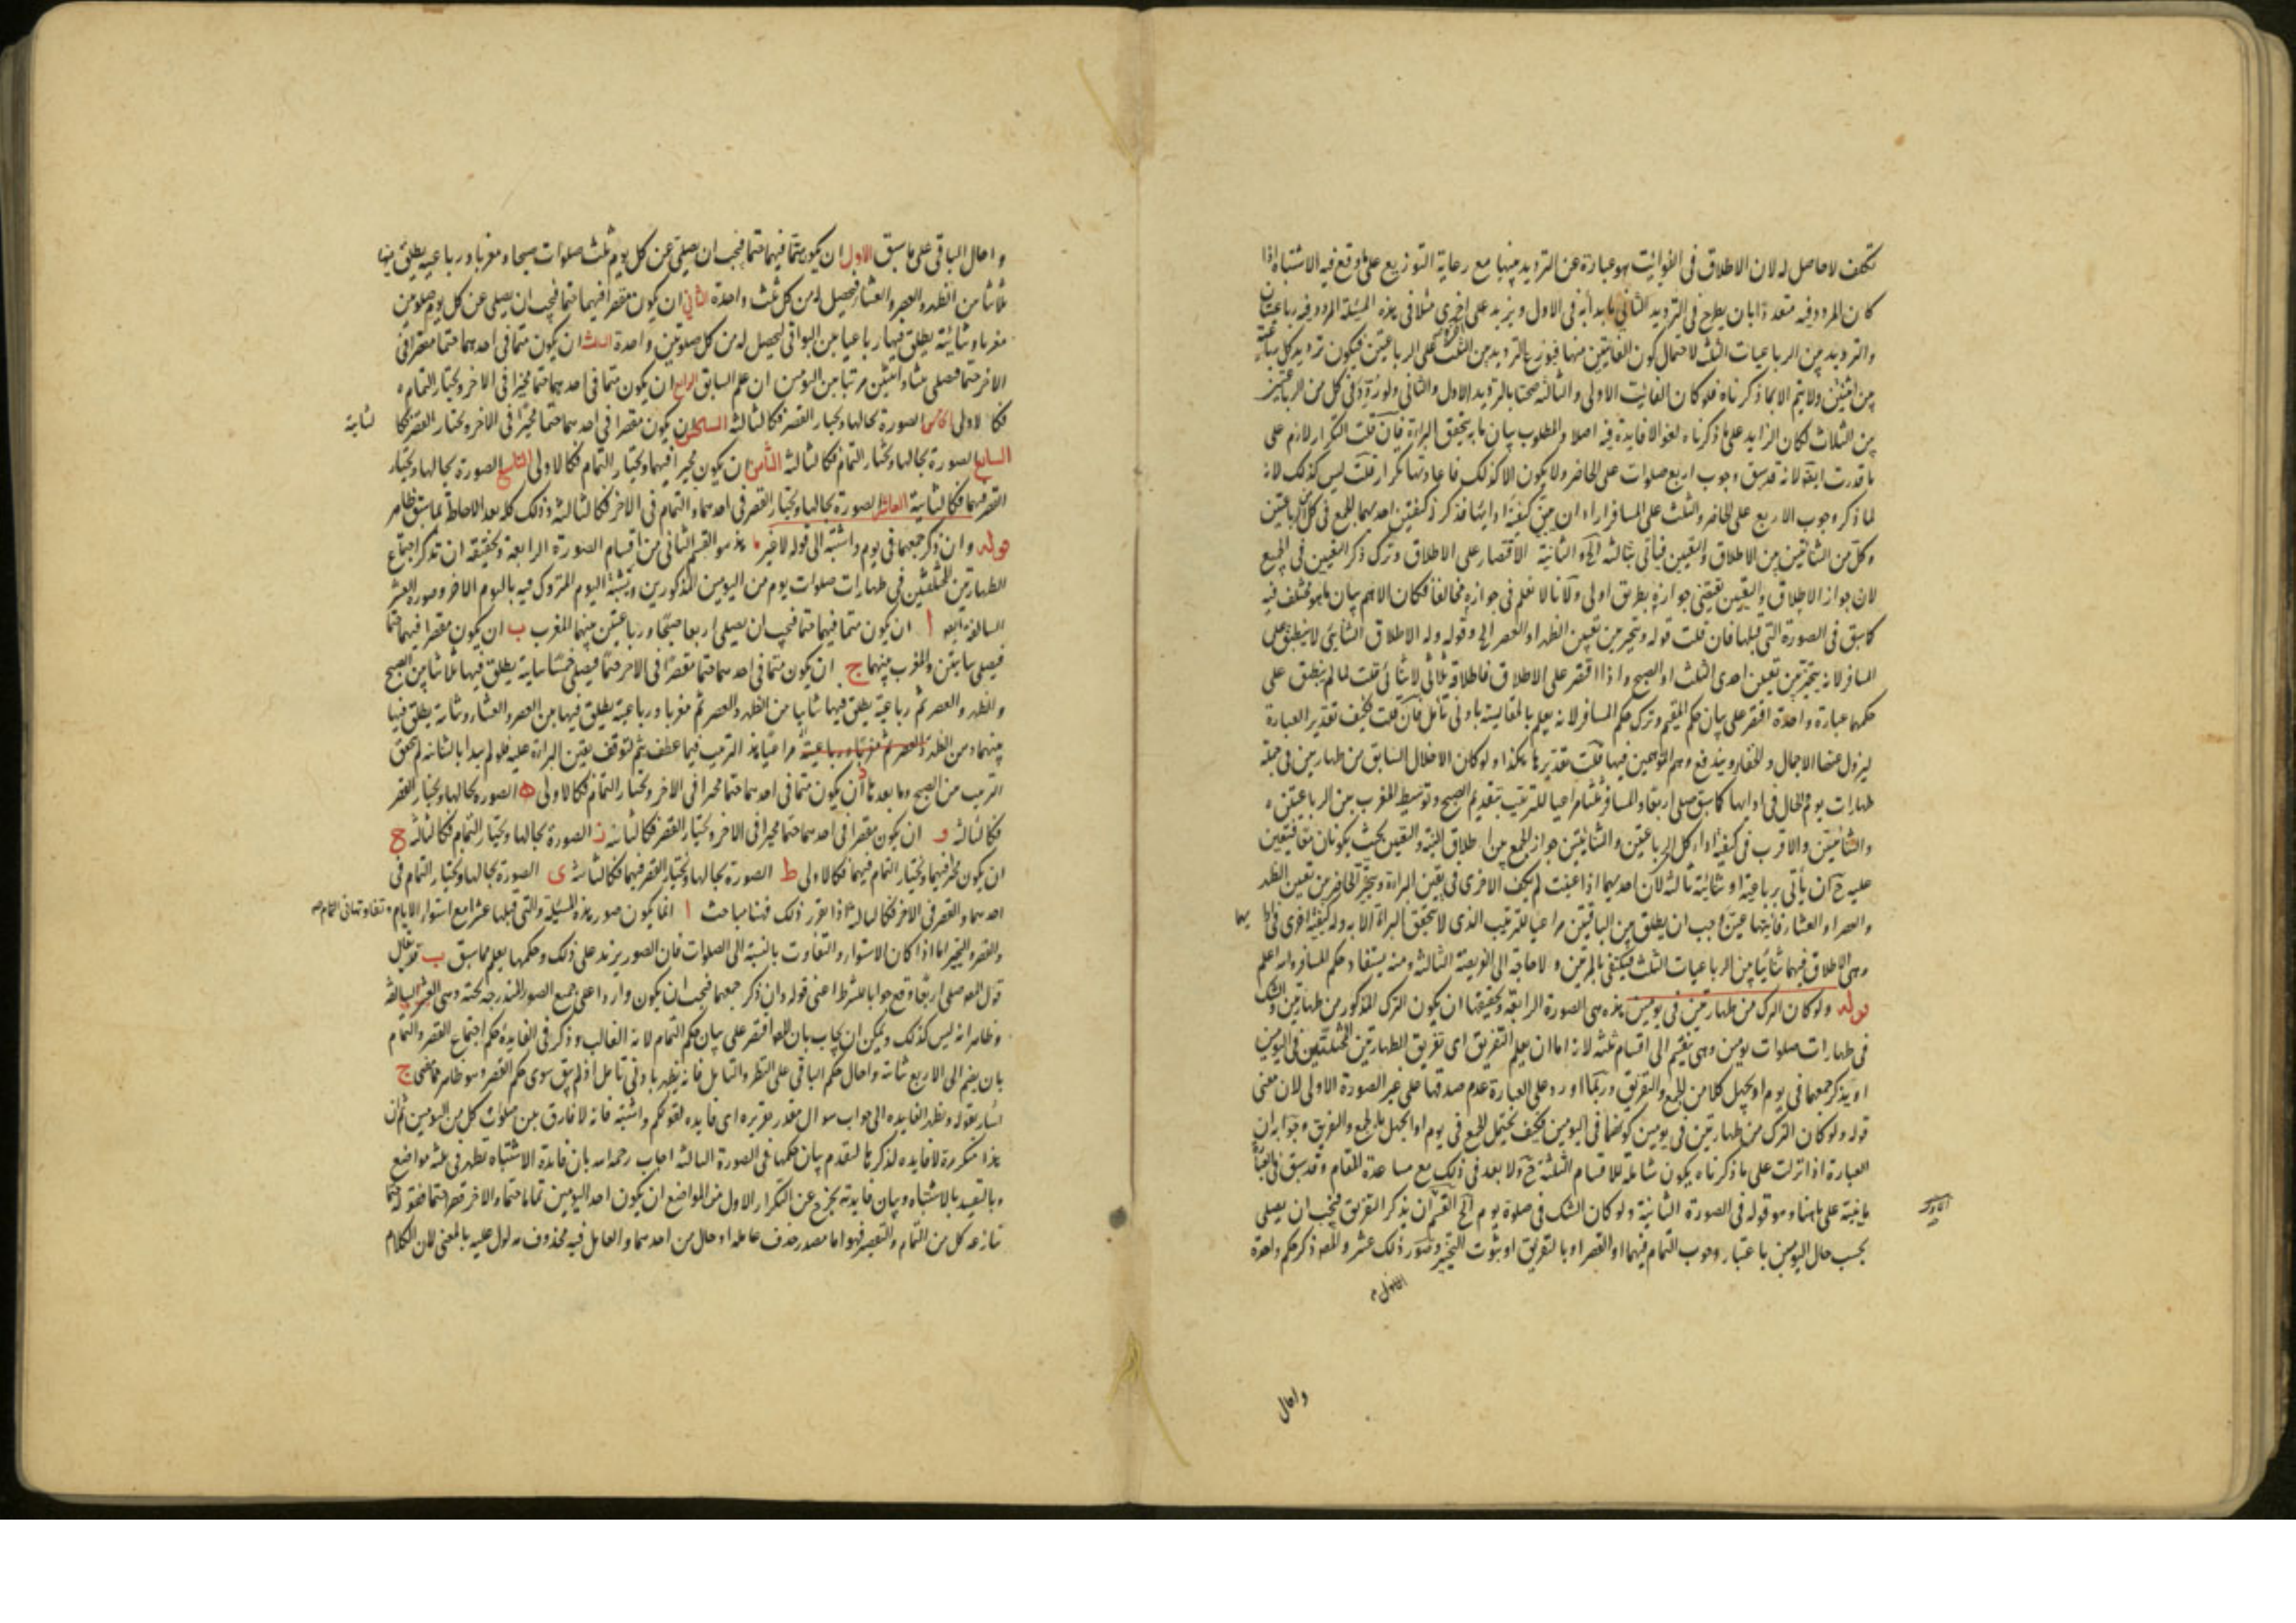 تكلف لا حاصل له لان الاطلاق فى الفوائت هو عبارة عن الترديد بينها مع رعاية التوزيع على ما وقع فيه الاشتباه اذا
كان المردد فيه متعددا بان يطرح فى الترديد الثانى ما بدأ به فى الاول ويزيد على اخرى مثلا فى هذه المسئلة المردد فيه رباعيتان
والترديد بين الرباعيات الثلث لاحتمال كون الفائتتين منها فيوزع الترديد بين الثلث على الرباعيتين فيكون ترديد كل رباعية
بين اثنتين ولا يتم الا بما ذكرناه فلو كان الفائت الاولى والثالثة صحتا بالترديد الاول والثانى ولو ردد فى كل من الرباعيتين
بين الثلاث لكان الزايد على ما ذكرناه لغوا لا فايدة فيه اصلا والمطلوب بيان ما به يتحقق البراءة فان قلت التكرار لازم على
ما قدرت ايضا لانه قد سبق وجوب اربع صلوات على الحاضر ولا يكون الا كذلك فاعادتها تكرار قلت ليس كذلك لانه
لما ذكر وجوب الاربع على الحاضر والثلث على المسافر اراد ان يبين كيفية ادائها فذكر كيفيتين احديهما الجمع فى كل من الرباعيتين
وكل من الثنائيتين بين الاطلاق والتعيين فيأتى بثالثة الخ والثانية الاقتصار على الاطلاق وترك ذكر التعيين فى الجميع
لان جواز الاطلاق والتعيين يقتضى جوازه بطريق اولى ولانا لا نعلم فى جوازه مخالفا فكان الاهم بيان ما هو مختلف فيه
كما سبق فى الصورة التى قبلها فان قلت قوله ويتخير بين تعيين الظهر او العصر الخ وقوله وله الاطلاق الثنائى لا ينطبق على
المسافر لانه يتخير بين تعيين احدى الثلث او الصبح واذا اقتصر على الاطلاق فاطلاقه ثلاثى لا ثنائى قلت لما لم ينطبق على
حكمهما عبارة واحدة اقتصر على بيان حكم المقيم وترك حكم المسافر لانه يعلم بالمقايسة بادنى تأمل فان قلت فكيف تقدير العبارة
ليزول عنها الاجمال والخفاء ويندفع وهم المتوهمين فيها قلت تقديرها هكذا ولو كان الاخلال السابق من طهارتين فى جملة
طهارات يوم فالحال فى ادائها كما سبق صلى اربعا والمسافر ثلثا مراعيا للترتيب بتقديم الصبح وتوسيط المغرب بين الرباعيتين
والثنائيتين والاقرب فى كيفية اداء كل الرباعيتين والثنائيتين جواز الجمع بين اطلاق النية والتعيين بحيث يكونان متعاقبتين
عليه ح ان يأتى برباعية او ثنائية ثالثة لان احديهما اذا عينت لم تكف الاخرى فى يقين البراءة ويتخير الحاضر بين تعيين الظهر
والعصر او العشاء فايتها عين وجب ان يطلق بين الباقيتين مراعيا للترتيب الذى لا يتحقق البراءة الا به وله كيفية اخرى فى ادائهما
وهى الاطلاق فيهما ثنائيا بين الرباعيات الثلث فيكتفى بالمرتين ولا حاجة الى الفريضة الثالثة ومنه يستفاد حكم المسافر والله اعلم
قوله ولو كان الترك من طهارتين فى يومين هذه هى الصورة الرابعة وتحقيقها ان يكون الترك المذكور من طهارتين والشك
فى طهارات صلوات يومين وهى تنقسم الى اقسام ثلثة لانه اما ان يعلم التفريق اى تفريق الطهارتين المختلتين فى اليومين
او يذكر جمعهما فى يوم او يجهل كلا من الجمع والتفريق وربما اورد على العبارة عدم صدقها على غير الصورة الاولى لان معنى
قوله ولو كان الترك من طهارتين فى يومين كونهما فى اليومين فكيف يحتمل الجمع فى يوم او الجهل بالجمع والتفريق وجوابه ان
العبارة اذا نزلت على ما ذكرناه يكون شاملة للاقسام الثلثة ح ولا بعد فى ذلك مع مساعدة المقام وقد سبق فى العبارة
ما ينبه على ما هنا وهو قوله فى الصورة الثانية ولو كان الشك فى صلوة يوم الخ القسم ان يذكر التفريق فيجب ان يصلى
بحسب حال اليومين باعتبار وجوب التمام فيهما او القصر او بالتفريق او ثبوت التخيير وصور ذلك عشر والمصـ ذكر حكم واحدة
الاول
واحال
واحال الباقى على ما سبق الاول ان يكون متما فيهما حتما فيجب ان يصلى عن كل يوم ثلث صلوات صبحا ومغربا ورباعية يطلق فيها
ثلاثا بين الظهر والعصر والعشاء فيحصل له من كل ثلث واحدة الثانى ان يكون مقصرا فيهما حتما فيجب ان يصلى عن كل يوم صلوتين
مغربا وثنائية يطلق فيها رباعيا بين البواقى ليحصل له من كل صلوتين واحدة الثالث ان يكون متما فى احدهما حتما مقصرا فى
الاخر حتما فيصلى ثلثا واثنتين مرتبا بين اليومين ان علم السابق الرابع ان يكون متما فى احدهما حتما مخيرا فى الاخر ويختار التمام
فكالاولى الخامس الصورة بحالها ويختار القصر فكالثالثة السادس ان يكون مقصرا فى احدهما حتما مخيرا فى الاخر ويختار القصر فكالثانية
السابع الصورة بحالها ويختار التمام فكالثالثة الثامن ان يكون مخيرا فيهما ويختار التمام فكالاولى التاسع الصورة بحالها ويختار
القصر فيهما فكالثانية العاشر الصورة بحالها ويختار القصر فى احدهما والتمام فى الاخر فكالثالثة وذلك كله بعد الاحاطة بما سبق ظاهر
قوله وان ذكر جمعهما فى يوم واشتبه الى قوله لا غير هذا هو القسم الثانى من اقسام الصورة الرابعة وتحقيقه ان تذكر اجتماع
الطهارتين المختلتين فى طهارات صلوات يوم من اليومين المذكورين ويشتبه اليوم المتروك فيه باليوم الاخر وصوره العشر
السالفة اتية ا ان يكون متما فيهما حتما فيجب ان يصلى اربعا صبحا ورباعيتين بينهما المغرب ب ان يكون مقصرا فيهما حتما
فيصلى ثنائيتين والمغرب بينهما ج ان يكون متما فى احدهما حتما مقصرا فى الاخر حتما فيصلى خمسا ثنائية يطلق فيها ثلاثا بين الصبح
والظهر والعصر ثم رباعية يطلق فيها ثنائيا بين الظهر والعصر ثم مغربا ورباعية يطلق فيها بين العصر والعشاء وثنائية يطلق فيها
بينهما ومن الظهر والعصر ثم مغربا ورباعية مراعيا هذا الترتيب فيما عطف بثم لتوقف يقين البراءة عليه فلو لم يبدا بالثنائية لم يتحقق
الترتيب من الصبح وما بعدها د ان يكون متما فى احدهما حتما مخيرا فى الاخر ويختار التمام فكالاولى ه الصورة بحالها ويختار القصر
فكالثالثة و ان يكون مقصرا فى احدهما حتما مخيرا فى الاخر ويختار القصر فكالثانية ز الصورة بحالها ويختار التمام فكالثالثة ح
ان يكون مخيرا فيهما ويختار التمام فيهما فكالاولى ط الصورة بحالها ويختار القصر فيهما فكالثانية ى الصورة بحالها ويختار التمام فى
احدهما والقصر فى الاخر فكالثالثة اذا تقرر ذلك فهنا مباحث ا انما يكون صور هذه المسئلة والتى قبلها عشرا مع استواء الايام وتفاوتها فى التمام
والقصر والتخيير اما اذا كان الاستواء والتفاوت بالنسبة الى الصلوات فان الصور يزيد على ذلك وحكمها يعلم مما سبق ب قد يقال
قول المصـ صلى اربعا وقع جوابا للشرط اعنى قوله وان ذكر جمعهما فيجب ان يكون واردا على جميع الصور المندرجة تحته وهى العشر السالفة
وظاهر انه ليس كذلك ويمكن ان يجاب بان المصـ اقتصر على بيان حكم التمام لانه الغالب وذكر فى الفايدة حكم اجتماع القصر والتمام
بان يضم الى الاربع ثنائية واحال حكم الباقى على النظر والتأمل فانه يظهر بادنى تأمل اذ لم يبق سوى حكم القصر وهو ظاهر مما مضى ج
اشار بقوله وتظهر الفايدة الى جواب سوال مقدر تقريره اى فايدة لقولكم واشتبه فانه لا فارق بين صلوات كل من اليومين ثم ان
هذا متكررة لا فايدة لذكرها لتقدم بيان حكمها فى الصورة الثالثة اجاب رحمه الله بان فائدة الاشتباه تظهر فى ثلثة مواضع
وبالتقييد بالاشتباه وبيان فايدته يخرج عن التكرار الاول من المواضع ان يكون احد اليومين تماما حتما والاخر قصرا حتما فقوله حتما
تنازعه كل من التمام والتقصير فهو اما مصدر حذف عامله او حال من احدهما والعامل فيه محذوف مدلول عليه بالمعنى لان الكلام